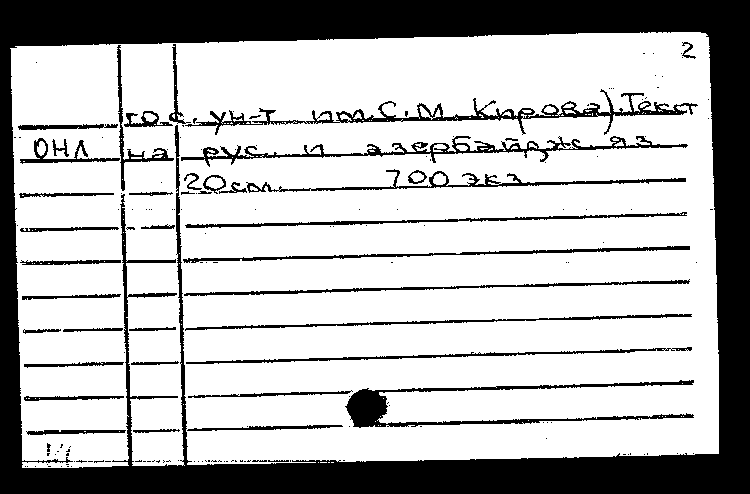 2
гос. ун-т им. С. М. Кирова). Текст
ОНЛ на рус. и азербайдж. яз.
20 см. 700 экз.